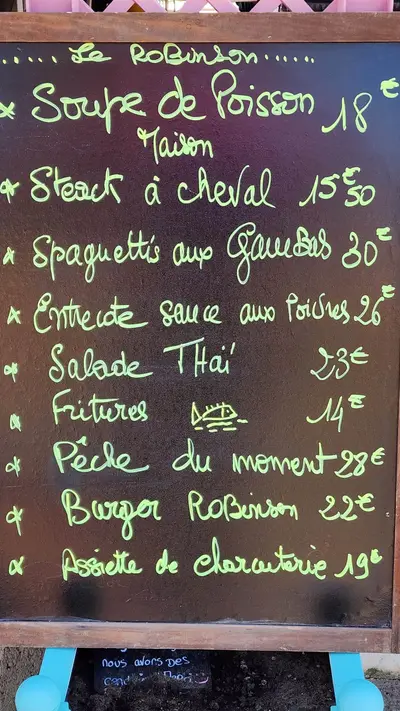 ..... Le RoBinson.....
* Soupe de Poisson 18€
Maison
* Steack à cheval 15€50
* Spaghettis aux Gambas 30€
* Entrecote sauce aux Poivres 26€
* Salade THaï 23€
* Fritures 14€
* Pêche du moment 28€
* Burger RoBinson 22€
* Assiette de charcuterie 19€
nous avons Des